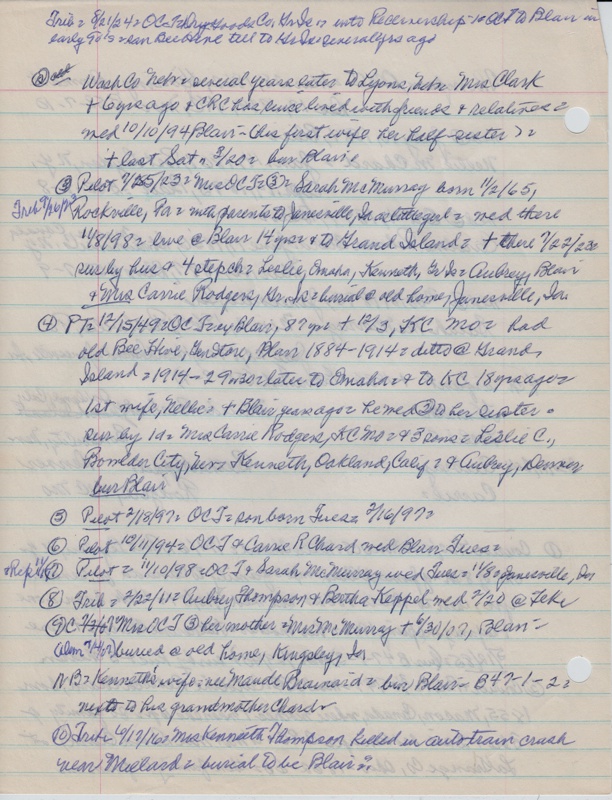 Trib = 8/21/24 = OCT Dry Goods Co, Gr Is = into Receivership = to Blair in
early 90's = ran Beehive till to Gr Is = several yrs ago
Wash Co Nebr = several years later to Lyons, Nebr = Mrs Clark
+ 6 yrs ago & CRC has since lived with friends & relatives =
med 10/10/94 Blair - (his first wife her half-sister) =
+ last Sat = 3/20 = bur Blair.
③ Pilot 7/25/23 = Mrs OCT = ③ = Sarah McMurray born 11/2/65,
Trib 7/26/23
Rockville, Pa = with parents to Janesville, Ia as little girl = med there
11/8/98 = live @ Blair 14 yrs = & to Grand Island = + there 7/22/23 =
sur by hus & 4 stepch = Leslie, Omaha, Kenneth, Gr Is = Aubrey, Blair
& Mrs Carrie Rodgers, Gr. Is = buried @ old home, Janesville, Ia
④ PT = 12/15/49 = OC T, Blair, 87 yr + 12/3, KC Mo = had
old Bee Hive, Gen Store, Blair 1884-1914 = ditto @ Grand
Island = 1914 - 29 = later to Omaha = & to KC 18 yrs ago =
1st wife, Nellie = + Blair, years ago = he med ② her sister =
sur by 1 d = Mrs Carrie Rodgers, KC Mo = & 3 sons = Leslie C.,
Boulder City, Nev, Kenneth, Oakland, Calif = & Aubrey, Denver
bur Blair
⑤ Pilot 2/18/97 = OCT = son born Tues = 2/16/97 =
⑥ Pilot 10/11/94 = OCT & Carrie R Chard med Blair Tues =
⑦ Pilot = 11/10/98 = OCT & Sarah McMurray wed Tues = 11/8 = Janesville, Ia
⑧ Trib = 2/22/11 = Aubrey Thompson & Bertha Keppel med 2/20 @ Teka
Mrs OCT ③ her mother = Mrs McMurray + 6/30/07, Blair =
buried @ old home, Kingsley, Ia
NB = Kenneth's wife = nee Maude Brainard = bur Blair - B47-1-2 =
next to his grandmother Chard
⑩ Trib 6/17/16 = Mrs Kenneth Thompson killed in auto train crash
near Millard = burial to be Blair